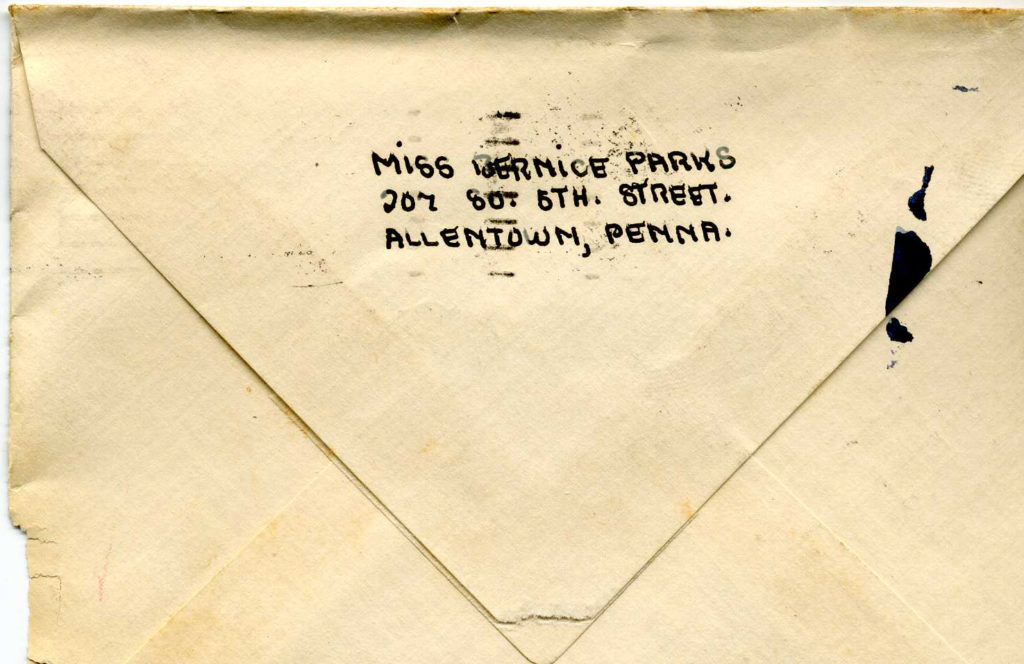 MISS BERNICE PARKS
207 SO. 5TH. STREET.
ALLENTOWN, PENNA.